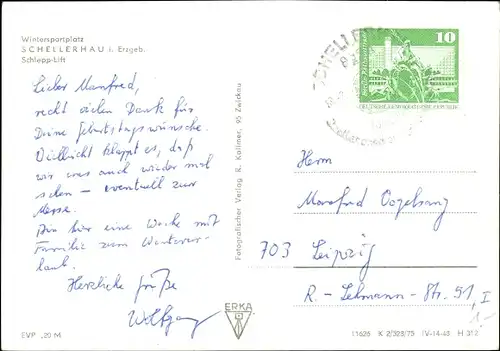 Wintersportplatz
SCHELLERHAU i. Erzgeb.
Schlepp-Lift
Lieber Manfred,
recht vielen Dank für
Deine Geburtstagswünsche.
Vielleicht klappt es, daß
wir uns auch wieder mal
sehen – eventuell zur
Messe.
Bin hier eine Woche mit
Familie zum Winterur-
laub.
Herzliche Grüße
Wolfgang
EVP -,20 M
Fotografischer Verlag R. Kallmer, 95 Zwickau
ERKA
SCHELLERHAU
10
DEUTSCHE DEMOKRATISCHE REPUBLIK
Herrn
Manfred Vogelsang
703 Leipzig
R.-Lehmann-Str. 51, I
11626 K 2/328/75 IV-14-48 H 312